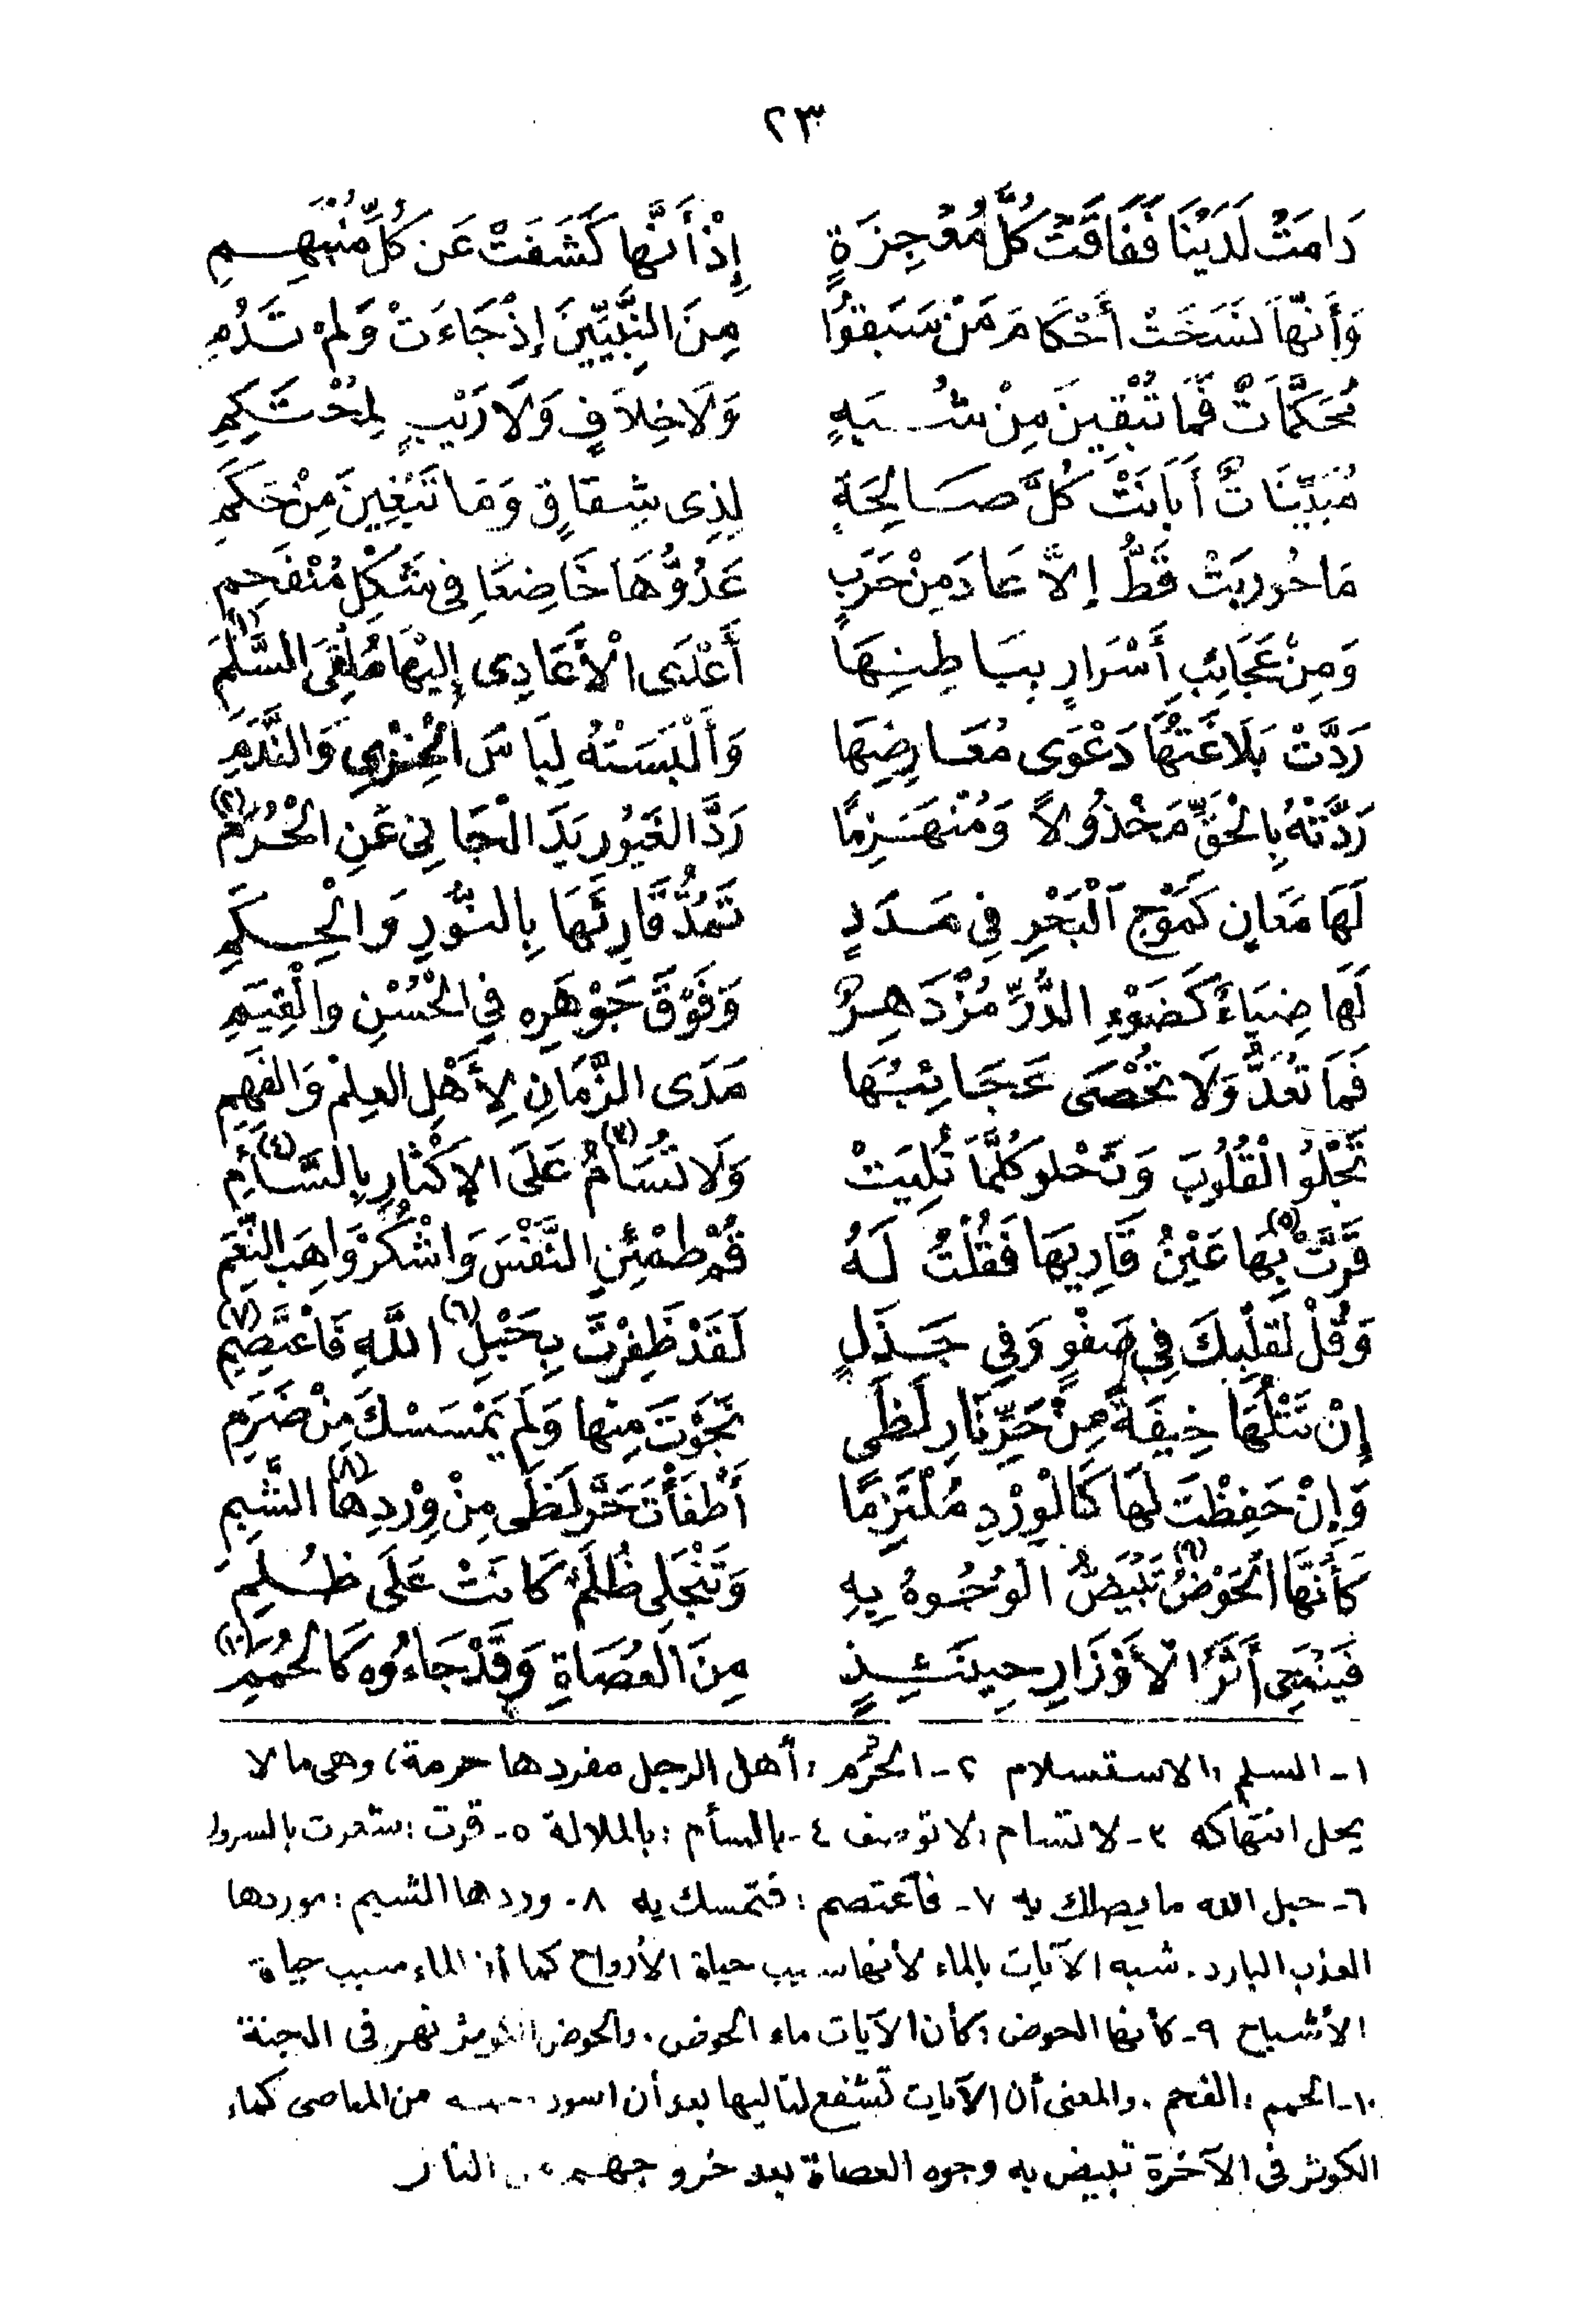 ٢٣
دَامَتْ لَدَيْنَا فَفَاقَتْ كُلَّ مُعْجِزَةٍ إِذْ أَنَّها كَشَفَتْ عَن كُلِّ مُنْبَهِمِ
وَأَنَّهَا نَسَخَتْ أَحْكَامَ مَنْ سَبَقُوا مِنَ النَّبِيِّينَ إِذْ جَاءَتْ وَلَمْ تَدُمِ
مُحَكَّمَاتٌ فَمَا تُبْقِينَ مِنْ شُبَهٍ وَلَا خِلَافٍ وَلَا رَيْبٍ لِمُحْتَكِمِ
مُبَيِّنَاتٌ أَبَانَتْ كُلَّ صَالِحَةٍ لِذِى شِقَاقٍ وَمَا تَبْغِينَ مِنْ حَكَمِ
مَا حُورِبَتْ قَطُّ إِلَّا عَادَ مِنْ حَرَبٍ عَدُوُّهَا خَاضِعًا فِى شَكْلِ مُنْفَحِمِ
وَمِنْ عَجَائِبِ أَسْرَارٍ بِبَاطِنِهَا أَعْدَى الْأَعَادِى إِلَيْهَا مُلْقِىَ السَّلَمِ (١)
رَدَّتْ بَلَاغَتُهَا دَعْوَى مُعَارِضِهَا وَأَلْبَسَتْهُ لِبَاسَ الْخِزْىِ وَالنَّدَمِ
رَدَّتْهُ بِالْحَقِّ مَخْذُولاً وَمُنْهَزِمًا رَدَّ الغَيُورِ يَدَ الْجَانِى عَنِ الْحُرَمِ (٢)
لَهَا مَعَانٍ كَمَوْجِ الْبَحْرِ فِى مَدَدٍ تَمُدُّ قَارِئَهَا بِالنُّورِ وَالْحِكَمِ
لَهَا ضِيَاءٌ كَضَوْءِ الدُّرِّ مُزْدَهِرٌ وَفَوْقَ جَوْهَرِهِ فِي الْحُسْنِ وَالْقِيَمِ
فَمَا تُعَدُّ وَلَا تُحْصَى عَجَائِبُهَا مَدَى الزَّمَانِ لِأَهْلِ العِلْمِ وَالفَهِمِ
تَجْلُو الْقُلُوبَ وَتَحْلو كُلَّمَا تُلِيَتْ وَلَا تُسَامُ (٣) عَلَى الإِكْثَارِ بِالسَّأَمِ (٤)
قَرَّتْ (٥) بِهَا عَيْنُ قَارِيهَا فَقُلْتُ لَهُ قُمْ طَمْئِنِ النَّفْسَ وَاشْكُرْ وَاهِبَ النِّعَمِ
وَقُلْ لَقَلْبِكَ فِي صَفْوٍ وَفِي جَذَلٍ لَقَدْ ظَفِرْتَ بِحَبْلِ (٦) اللَّهِ فَاعْتَصِمِ (٧)
إِنْ تَتْلُهَا خِيفَةً مِنْ حَرِّ نَارِ لَظَى نَجَوْتَ مِنها وَلَمْ يَمْسَسْكَ مِنْ ضَرَمِ
وَإِنْ حَفِظْتَ لَهَا كَالْوِرْدِ مُلْتَزِمًا أَطْفَأْتَ حَرَّ لَظَى مِنْ وِرْدِهَا (٨) الشَّبِمِ
كَأَنَّهَا الْحَوْضُ (٩) تَبْيَضُّ الوُجُوهُ بِهِ وَتَنْجَلِى ظُلَمٌ كَانَتْ عَلَى ظُلَمِ
فَيَنْمَحِى أَثَرُ الْأَوْزَارِ حِينَئِذٍ مِنَ العُصَاةِ وَقَدْ جَاءُوهُ كَالْحُمَمِ (١٠)
١- السلم : الاستسلام ٢- الحُرَم : أهل الرجل مفردها حرمة، وهى ما لا
يحل انتهاكه ٣- لا تسام : لا توصف ٤- بالسأم : بالملالة ٥- قرت : شعرت بالسرور
٦- حبل الله ما يصلك به ٧- فاعتصم : فتمسك به ٨- وردها الشبم : موردها
العذب البارد. شبه الآيات بالماء لأنها سبب حياة الأرواح كما أن الماء سبب حياة
الأشباح ٩- كأنها الحوض : كأن الآيات ماء الحوض. والحوض الكوثر نهر فى الجنة
١٠- الحمم : الفحم. والمعنى أن الآيات تشفع لتاليها بعد أن اسود من المعاصى كماء
الكوثر فى الآخرة تبيض به وجوه العصاة بعد خروجهم من النار